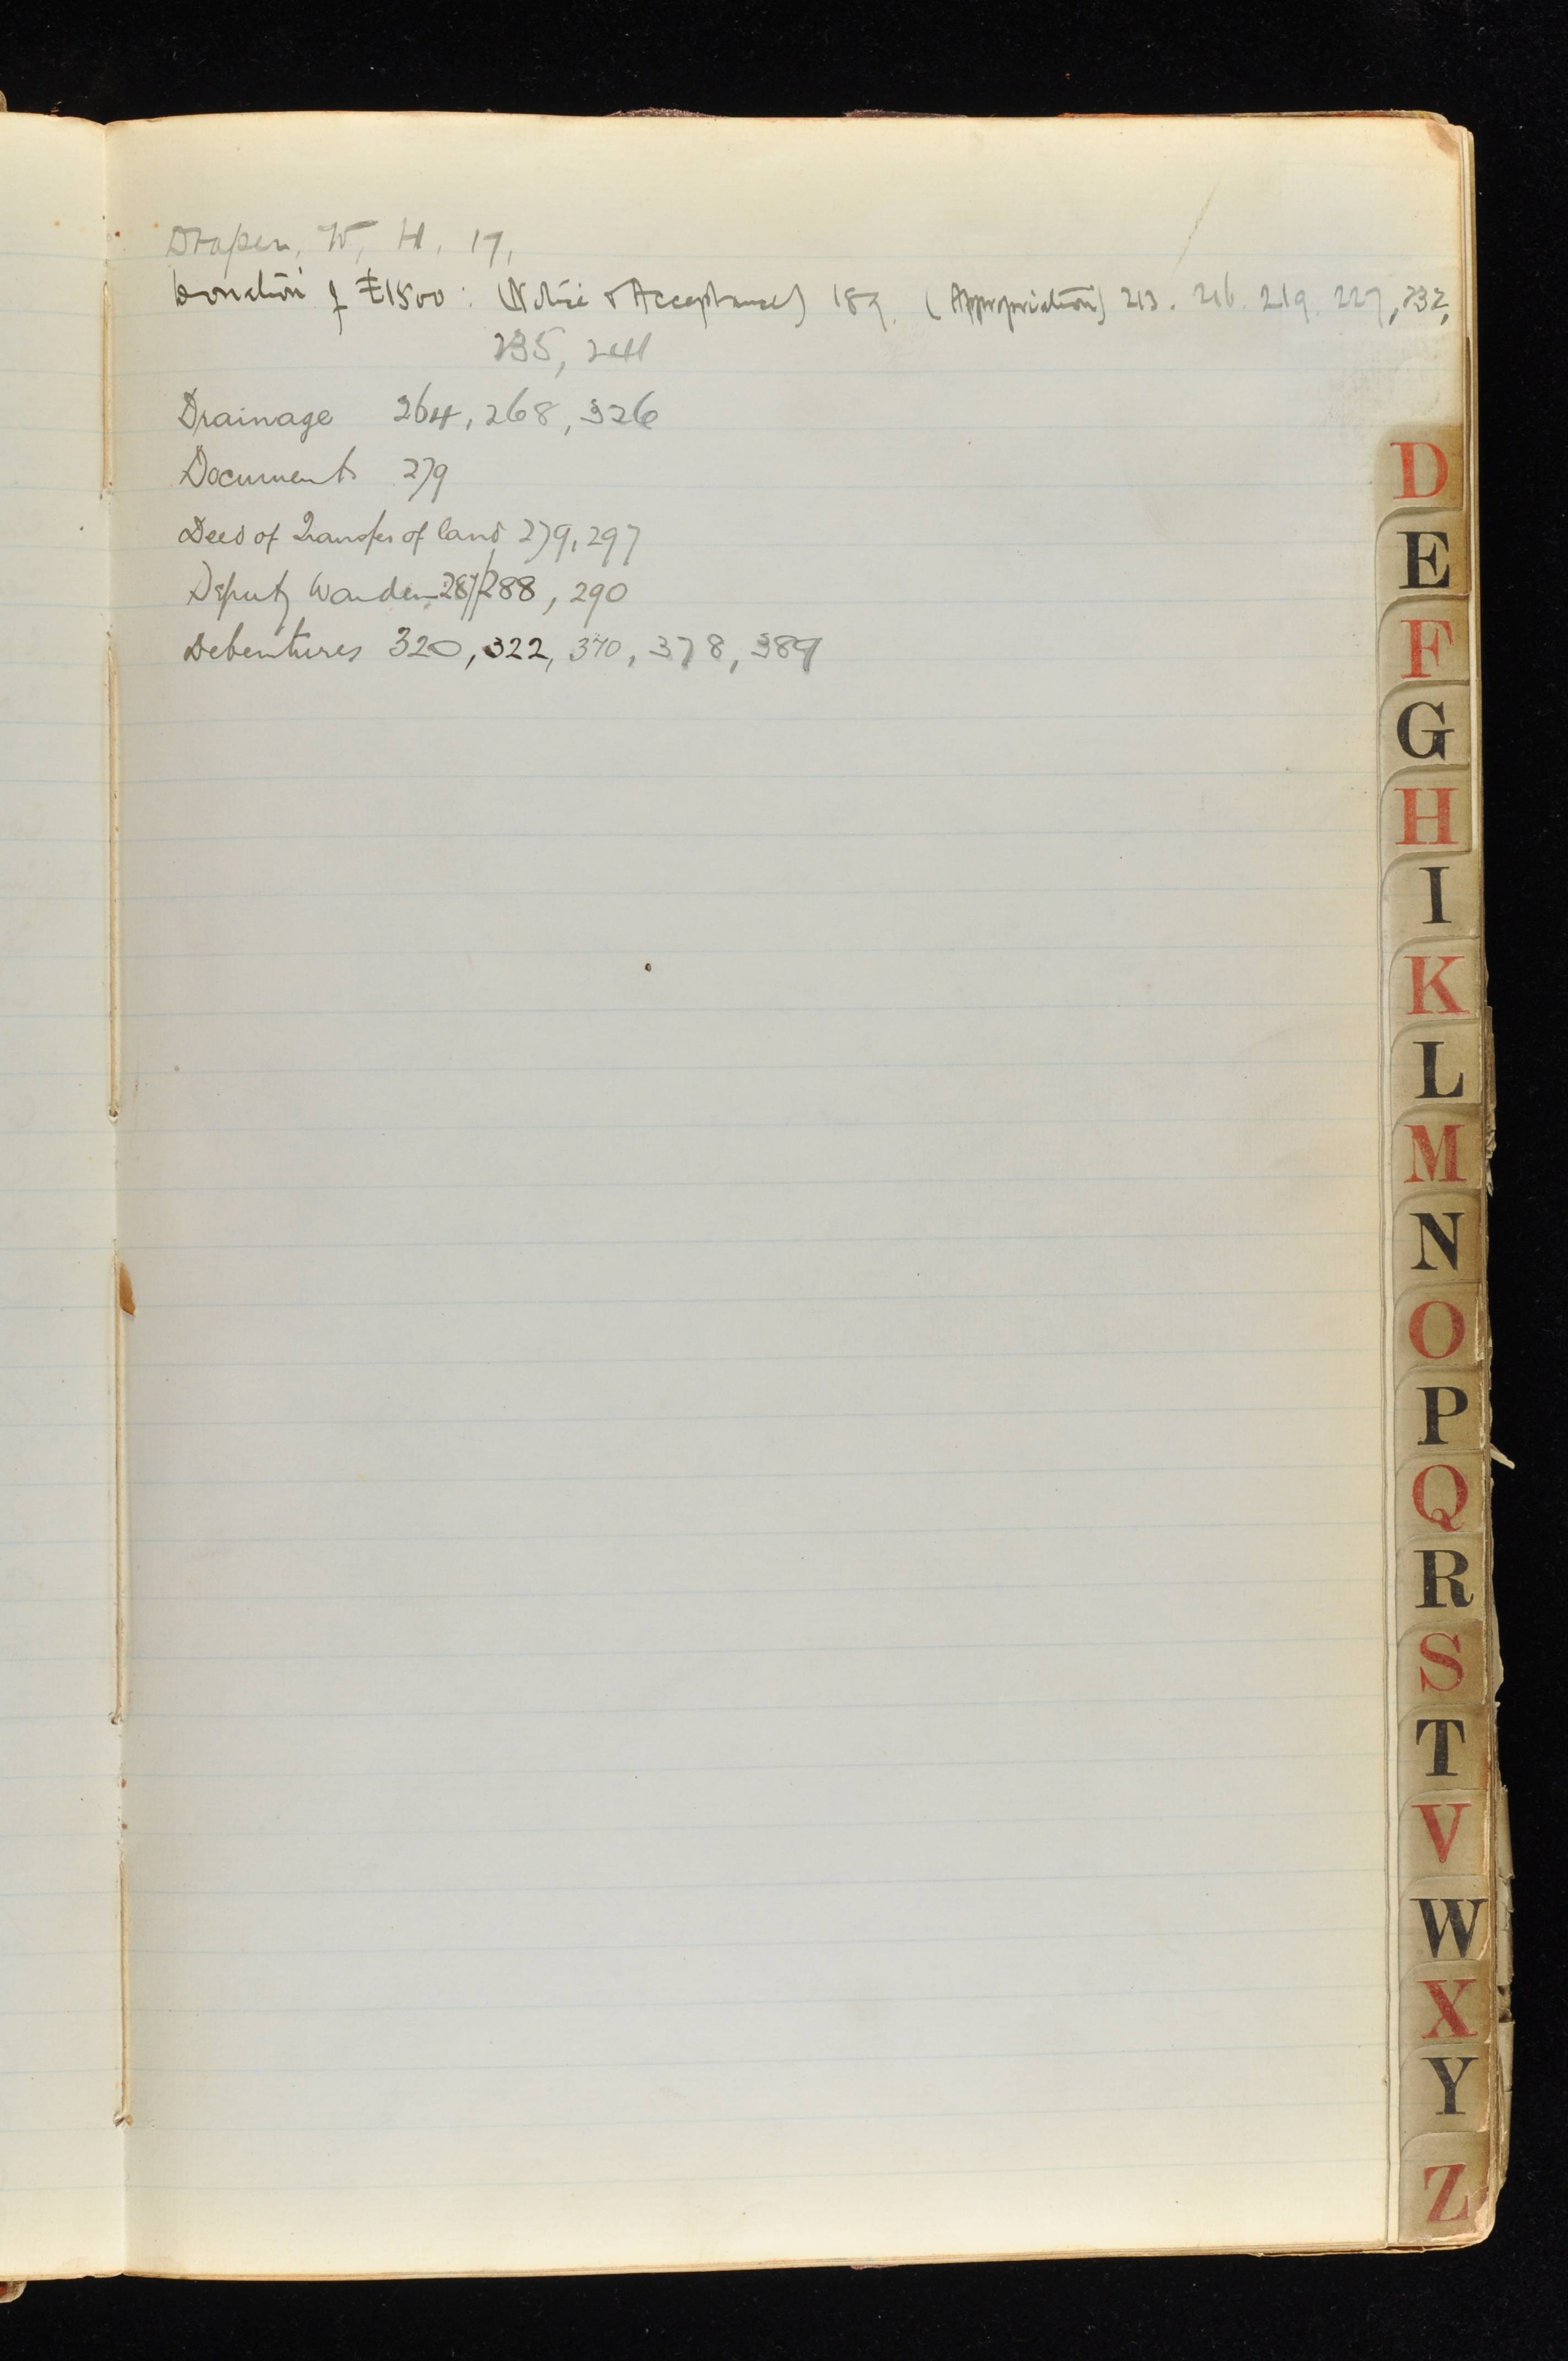 Draper, W, H, 17,
Donation of £1500: (Notice & Acceptance) 189. (Appropriation) 213. 216. 219. 227, 232,
235, 241
Drainage 264, 268, 326
Documents 279
Deed of Transfer of land 279, 297
Deputy Warden 287/288, 290
Debentures 320, 322, 370, 378, 389
D
E
F
G
H
I
K
L
M
N
O
P
Q
R
S
T
V
W
X
Y
Z